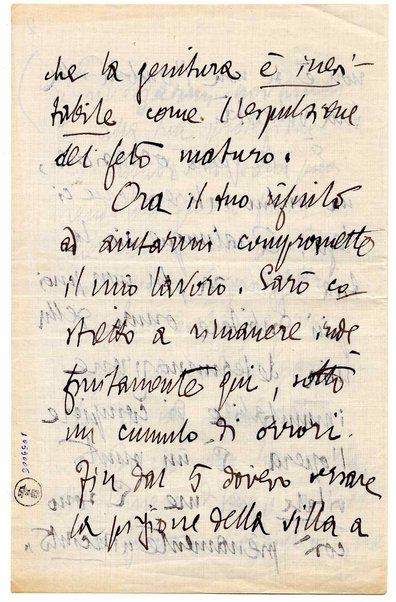 che la genitura è inevi-
tabile come l'espulsione
del feto maturo.
Ora il tuo rifiuto
ad aiutarmi compromette
il mio lavoro. Sarò co-
stretto a rimanere inde
finitamente qui, sotto
un cumulo di orrori.
Fin dal 5 dovevo versare
la pigione della villa a